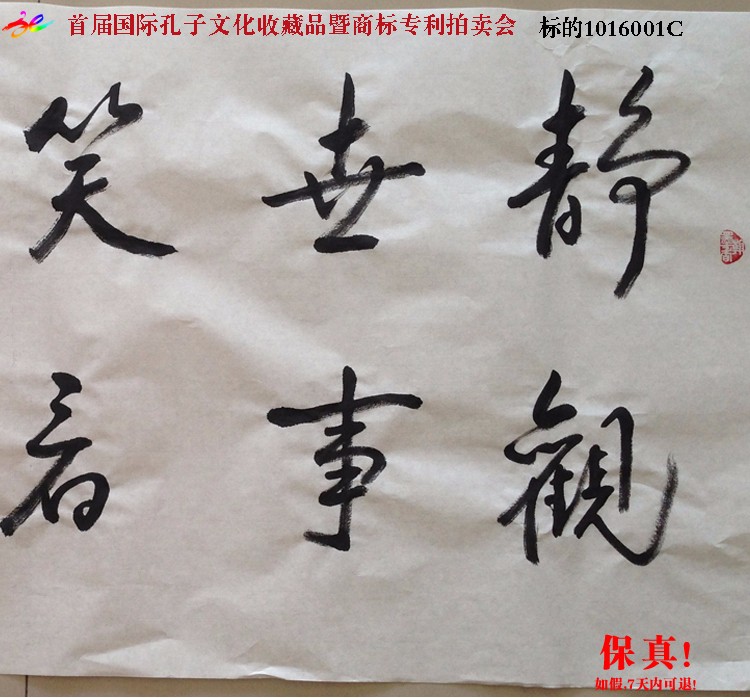 首届国际孔子文化收藏品暨商标专利拍卖会 标的1016001C
静觀
世事
笑看
保真!
如假,7天内可退!